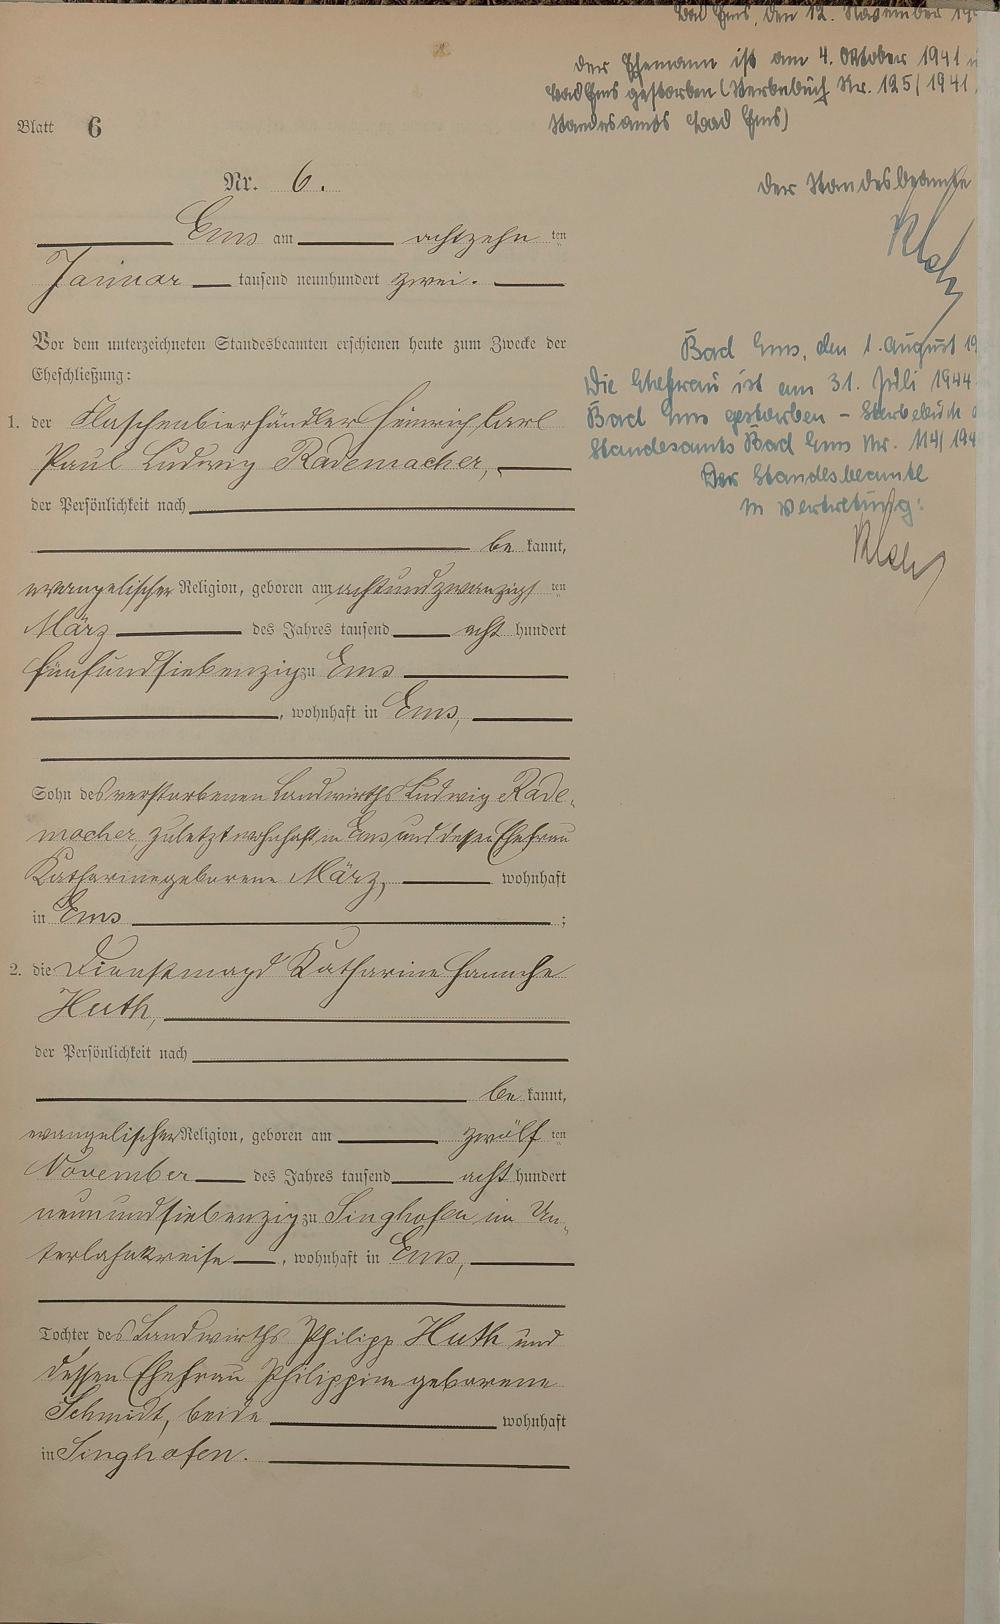 Bad Ems, den 12. November 19
der Ehemann ist am 4. Oktober 1941
Bad Ems gestorben (Sterbebuch Nr. 125/1941
Standesamts Bad Ems)
Der Standesbeamte
Blatt 6
Nr. 6.
Ems am achtzehn ten
Januar tausend neunhundert zwei.
Vor dem unterzeichneten Standesbeamten erschienen heute zum Zwecke der
Eheschließung:
1. der Flaschenbierhändler Heinrich Carl
Paul Ludwig Rademacher,
der Persönlichkeit nach
be kannt,
evangelischer Religion, geboren am achtundzwanzigs ten
März des Jahres tausend acht hundert
fünfundsiebenzig zu Ems
, wohnhaft in Ems,
Sohn des verstorbenen Landwirths Ludwig Rade-
macher, zuletzt wohnhaft in Ems und dessen Ehefrau
Katharine geborene März, wohnhaft
in Ems ;
2. die Dienstmagd Katharine Hannche
Huth,
der Persönlichkeit nach
be kannt,
evangelischer Religion, geboren am zwölf ten
November des Jahres tausend acht hundert
neunundsiebenzig zu Singhofen im Un-
terlahnkreise , wohnhaft in Ems,
Tochter des Landwirths Philipp Huth und
dessen Ehefrau Philippine geborene
Schmidt, beide wohnhaft
in Singhofen.
Bad Ems, den 1. August 19
Die Ehefrau ist am 31. Juli 1944
Bad Ems gestorben - Sterbebuch
Standesamts Bad Ems Nr. 114/194
Der Standesbeamte
In Vertretung: